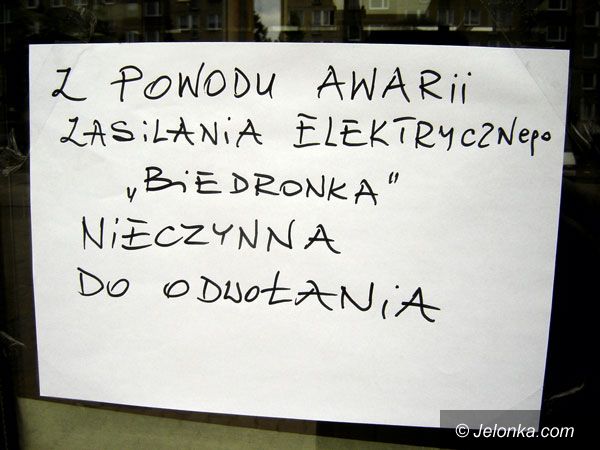 Z POWODU AWARii
ZASiLANiA ELEKTRYCZNego
„BiEDRONKA"
NiECZYNNA
DO ODWOŁANiA
© Jelonka.com